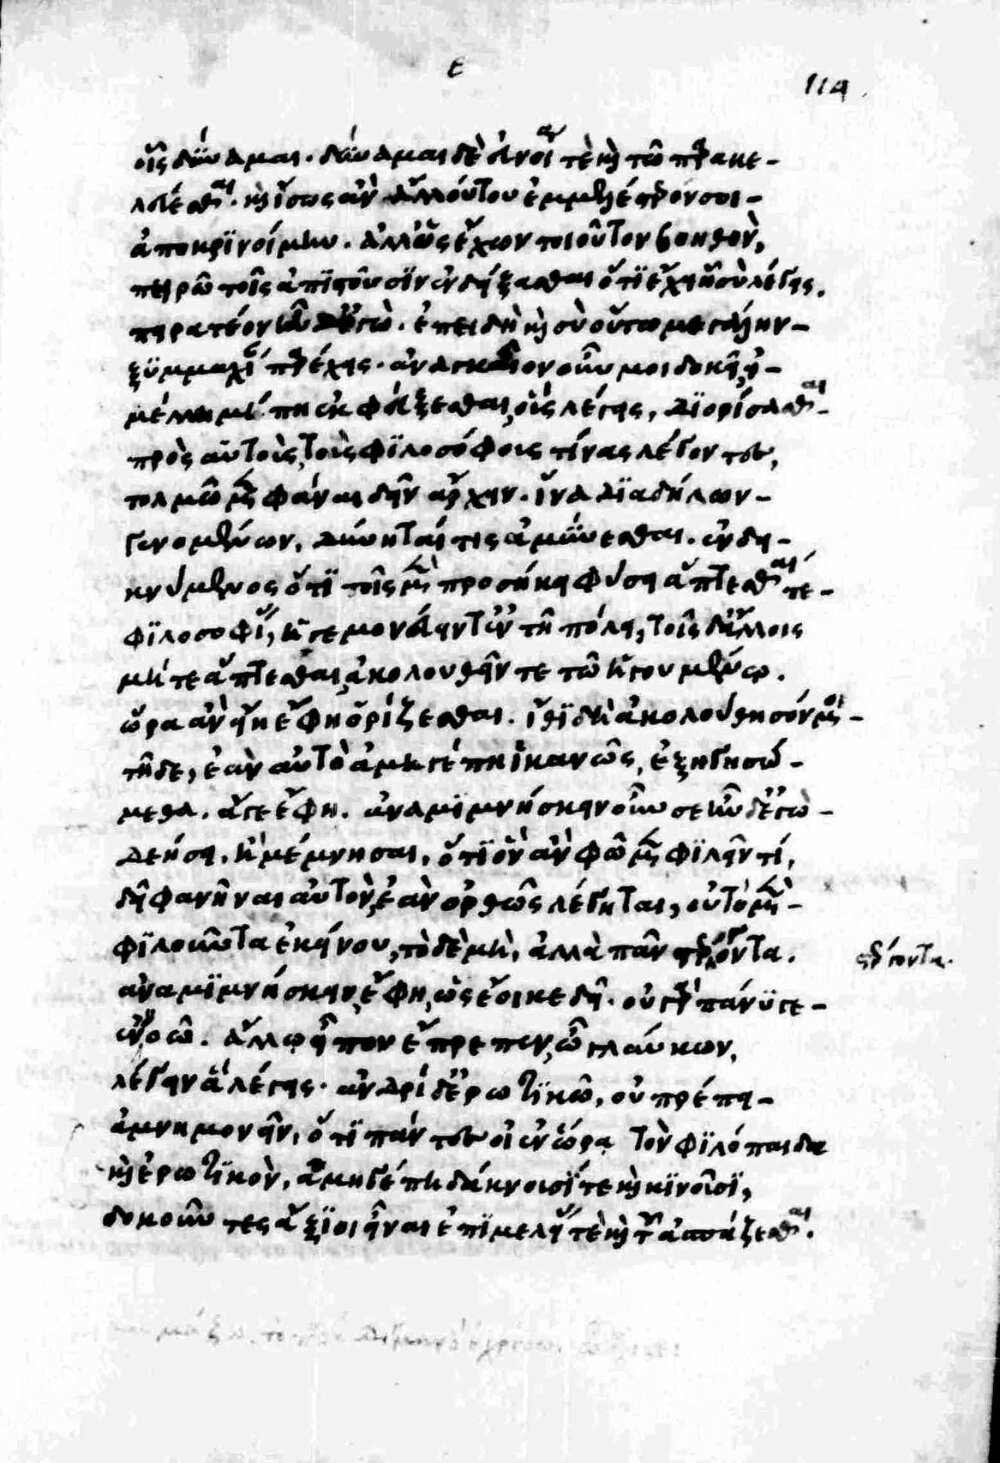 ε
114
οἷς δύναμαι. δύναμαι δὲ εὐνοίᾳ τὲ καὶ τῶ παρακε-
λεύεσθαι. καὶ ἴσως ἂν ἄλλου του ἐμμελέστερόν σοι-
ἀποκρινοίμην. ἀλλ' ὡς ἔχων τοιοῦτον βοηθὸν,
πειρῶ τοῖς ἀπιστοῦσιν ἐνδείξασθαι ὅτι ἔχει ἧ σὺ λέγεις.
πειρατέον ἦν δ' ἐγώ. ἐπειδὴ καὶ σὺ οὕτω μεγάλην-
ξυμμαχίαν παρέχεις. ἀναγκαῖον οὖν μοι δοκεῖ, εἰ-
μέλλομέν πη ἐκφεύξεσθαι, οὓς λέγεις, διορίσασθαι-
πρὸς αὐτοὺς, τοὺς φιλοσόφους τίνας λέγοντες,
τολμῶμεν φάναι δεῖν ἄρχειν. ἵνα διαδήλων-
γενομένων, δύνηταί τις ἀμύνεσθαι. ἐνδει-
κνύμενος ὅτι τοῖς μὲν προσήκει φύσει ἅπτεσθαί τε-
φιλοσοφίας, ἡγεμονεύειν τ' ἐν τῇ πόλει, τοῖς δ' ἄλλοις
μήτε ἅπτεσθαι, ἀκολουθεῖν τε τῶ ἡγουμένω.
ὥρα ἂν εἴη ἔφη ὁρίζεσθαι. ἴθι δὴ ἀκολούθησόν μοι-
τῇδε, ἐὰν αὐτὸ ἁμηγέπη ἱκανῶς, ἐξηγησώ-
μεθα. ἄγε ἔφη. ἀναμιμνήσκειν οὖν σε ἦν δ' ἐγὼ-
δεήσει, ἢ μέμνησαι, ὅτι ὃν ἂν φῶμεν φιλεῖν τί,
δεῖ φανῆναι αὐτὸν, ἐὰν ὀρθῶς λέγηται, οὐ τὸ μὲν-
φιλοῦντα ἐκείνου, τὸ δὲ μὴ, ἀλλὰ πᾶν στέργοντα.
στέργοντα.
ἀναμιμνήσκειν, ἔφη, ὡς ἔοικε δεῖ. οὐ γὰρ πάνυ γε-
ἐννοῶ. ἄλλω εἶπον ἔπρεπεν, ὦ γλαύκων,
λέγειν ἃ λέγεις. ἀνδρὶ δ' ἐρωτικῶ, οὐ πρέπει-
ἀμνημονεῖν, ὅτι πάντες οἱ ἐν ὥρα τὸν φιλόπαιδα
καὶ ἐρωτικὸν, ἁμηγέπη δάκνουσί τε καὶ κινοῦσι,
δοκοῦντες ἄξιοι εἶναι ἐπιμελείας τὲ καὶ τοῦ ἀσπάζεσθαι.